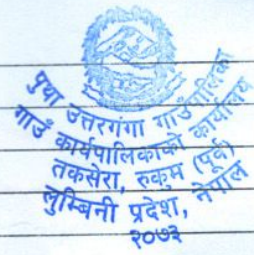 पुथा उत्तरगंगा गाउँपालिका
गाउँ कार्यपालिकाको कार्यालय
तकसेरा, रुकुम (पूर्व)
लुम्बिनी प्रदेश, नेपाल
२०७३